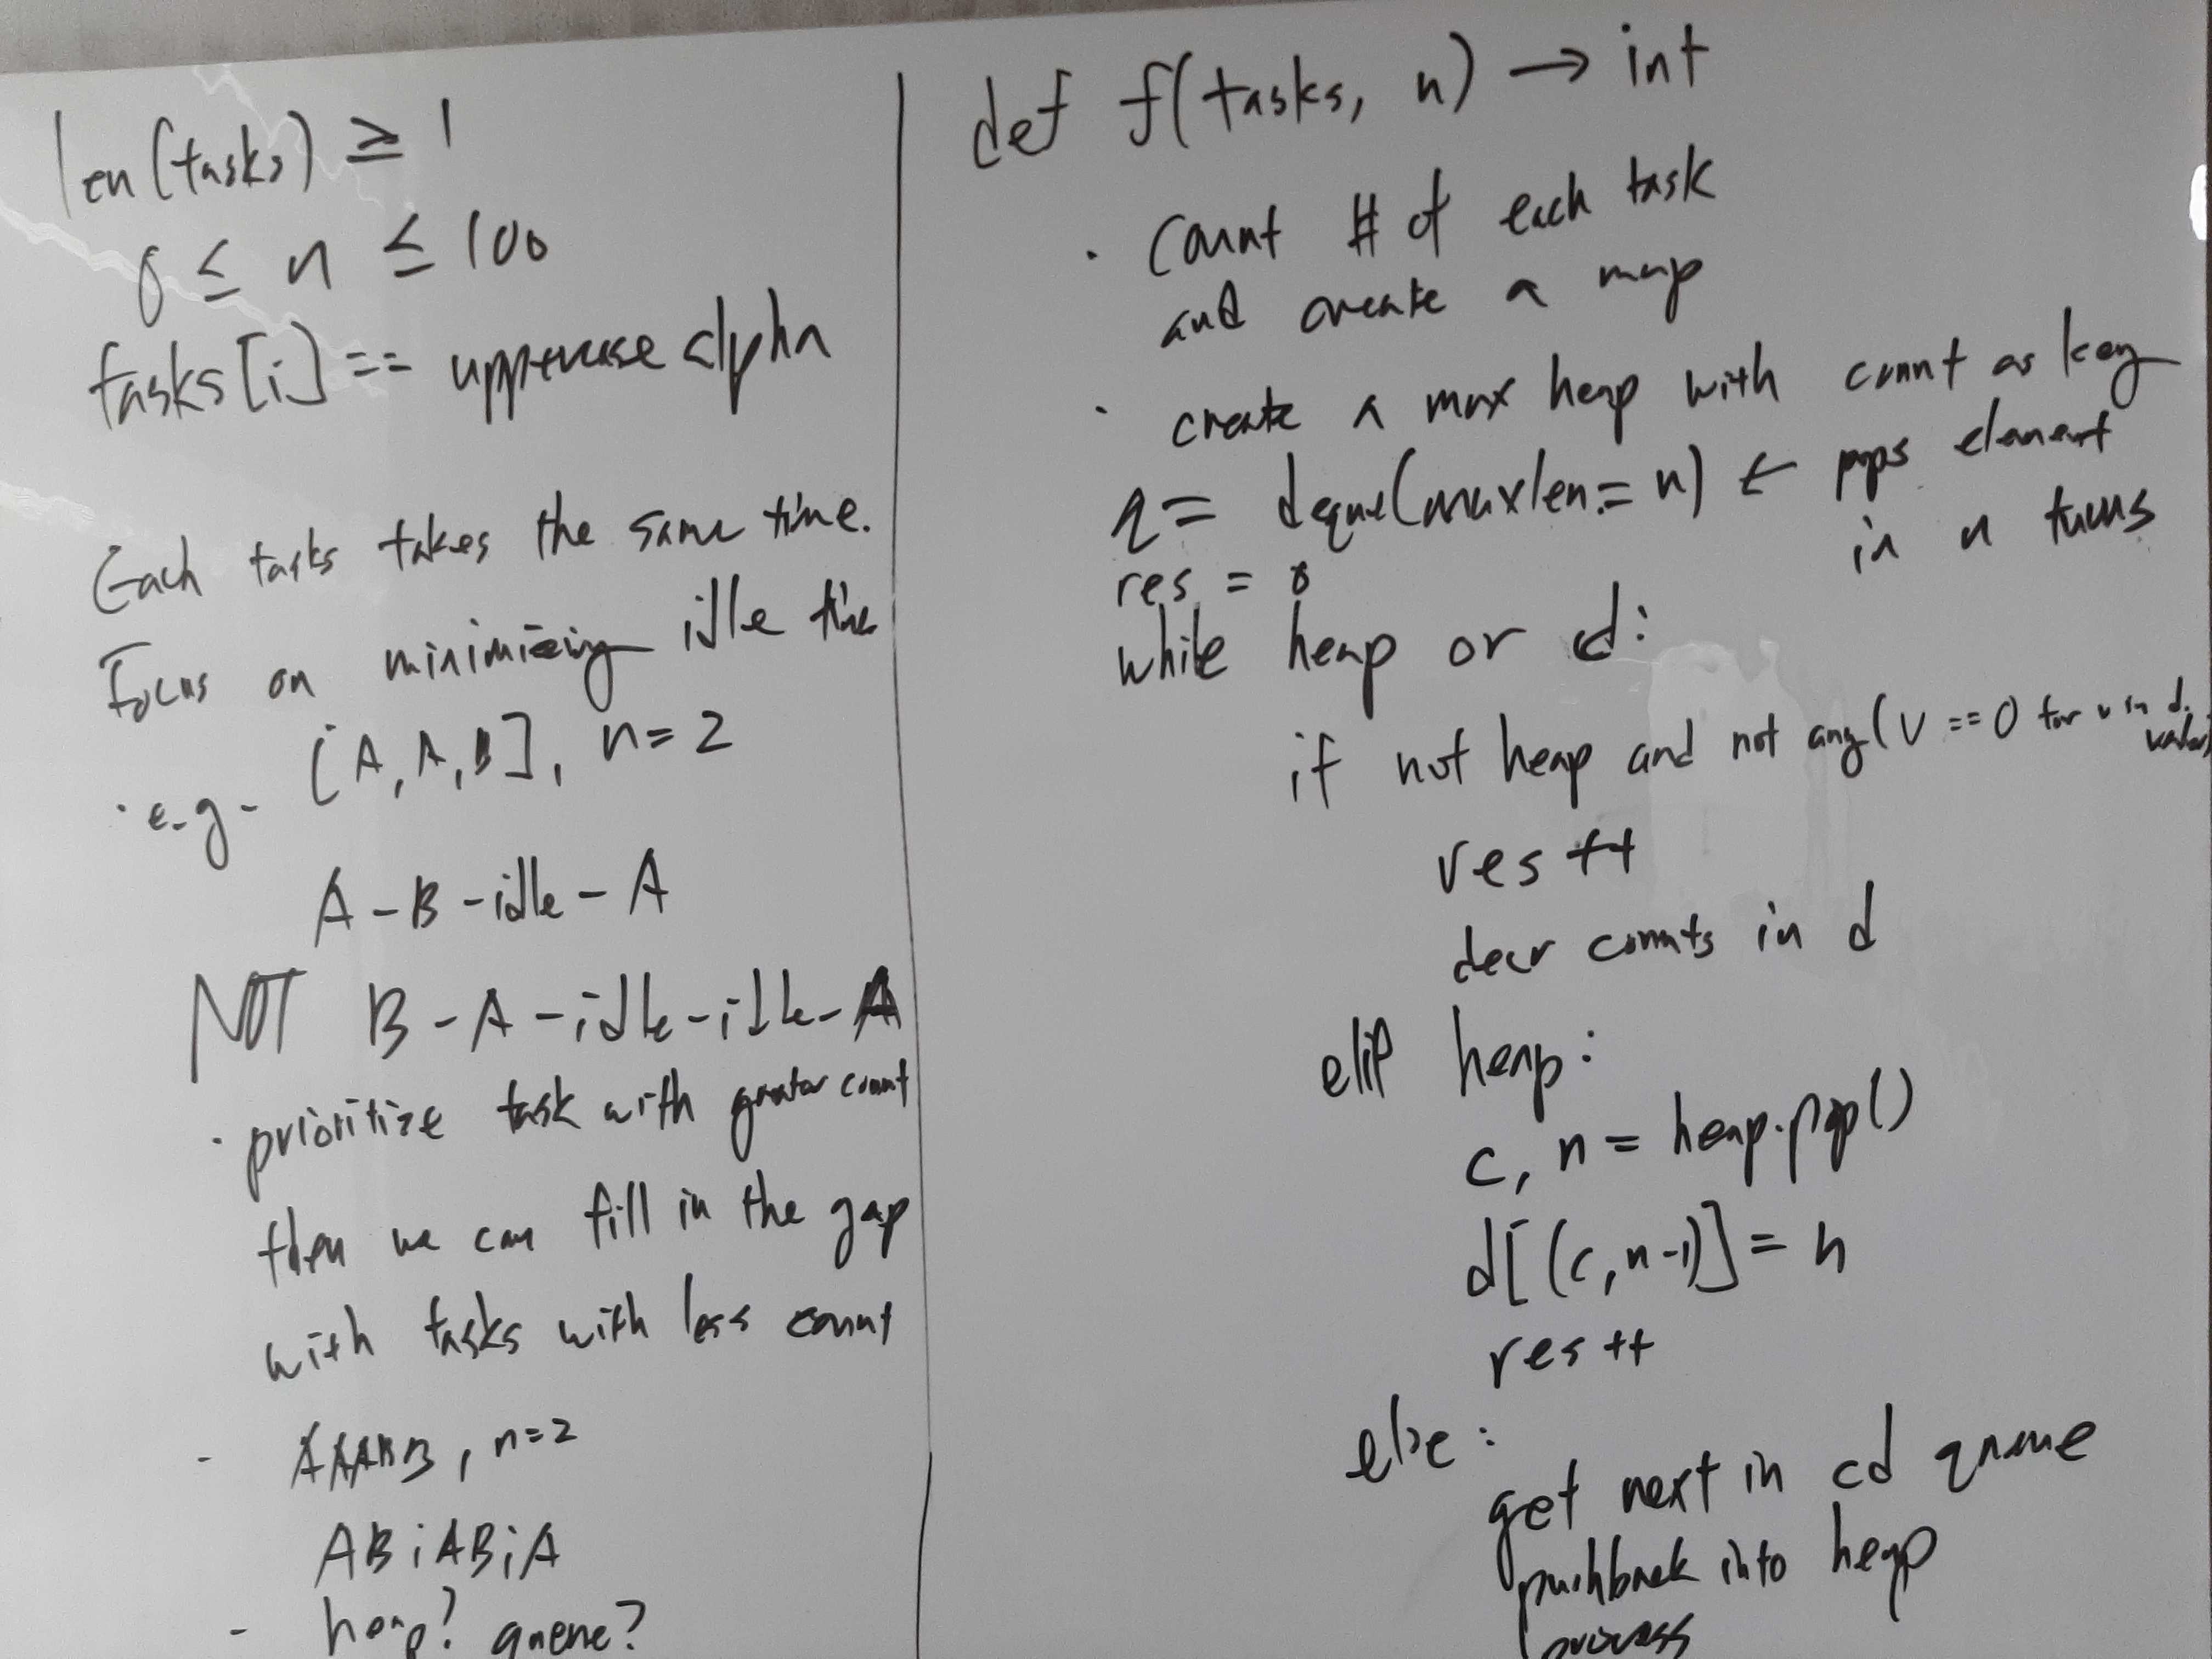 len(tasks) ≥ 1
0 ≤ n ≤ 100
tasks[i] == uppercase alpha
Each tasks takes the same time.
Focus on minimizing idle time
· e.g. [A, A, B], n=2
A-B-idle-A
NOT B-A-idle-idle-A
· prioritize task with greater count
then we can fill in the gap
with tasks with less count
- AAABB, n=2
ABiABiA
- heap? queue?
def f(tasks, n) → int
· Count # of each task
and create a map
· create a max heap with count as key
q = deque(maxlen=n) ← pops element
in n turns
res = 0
while heap or d:
if not heap and not any(v == 0 for v in d.
values)
res ++
decr counts in d
elif heap:
c, n = heap.pop()
d[(c, n-1)] = n
res ++
else:
get next in cd queue
pushback into heap
process